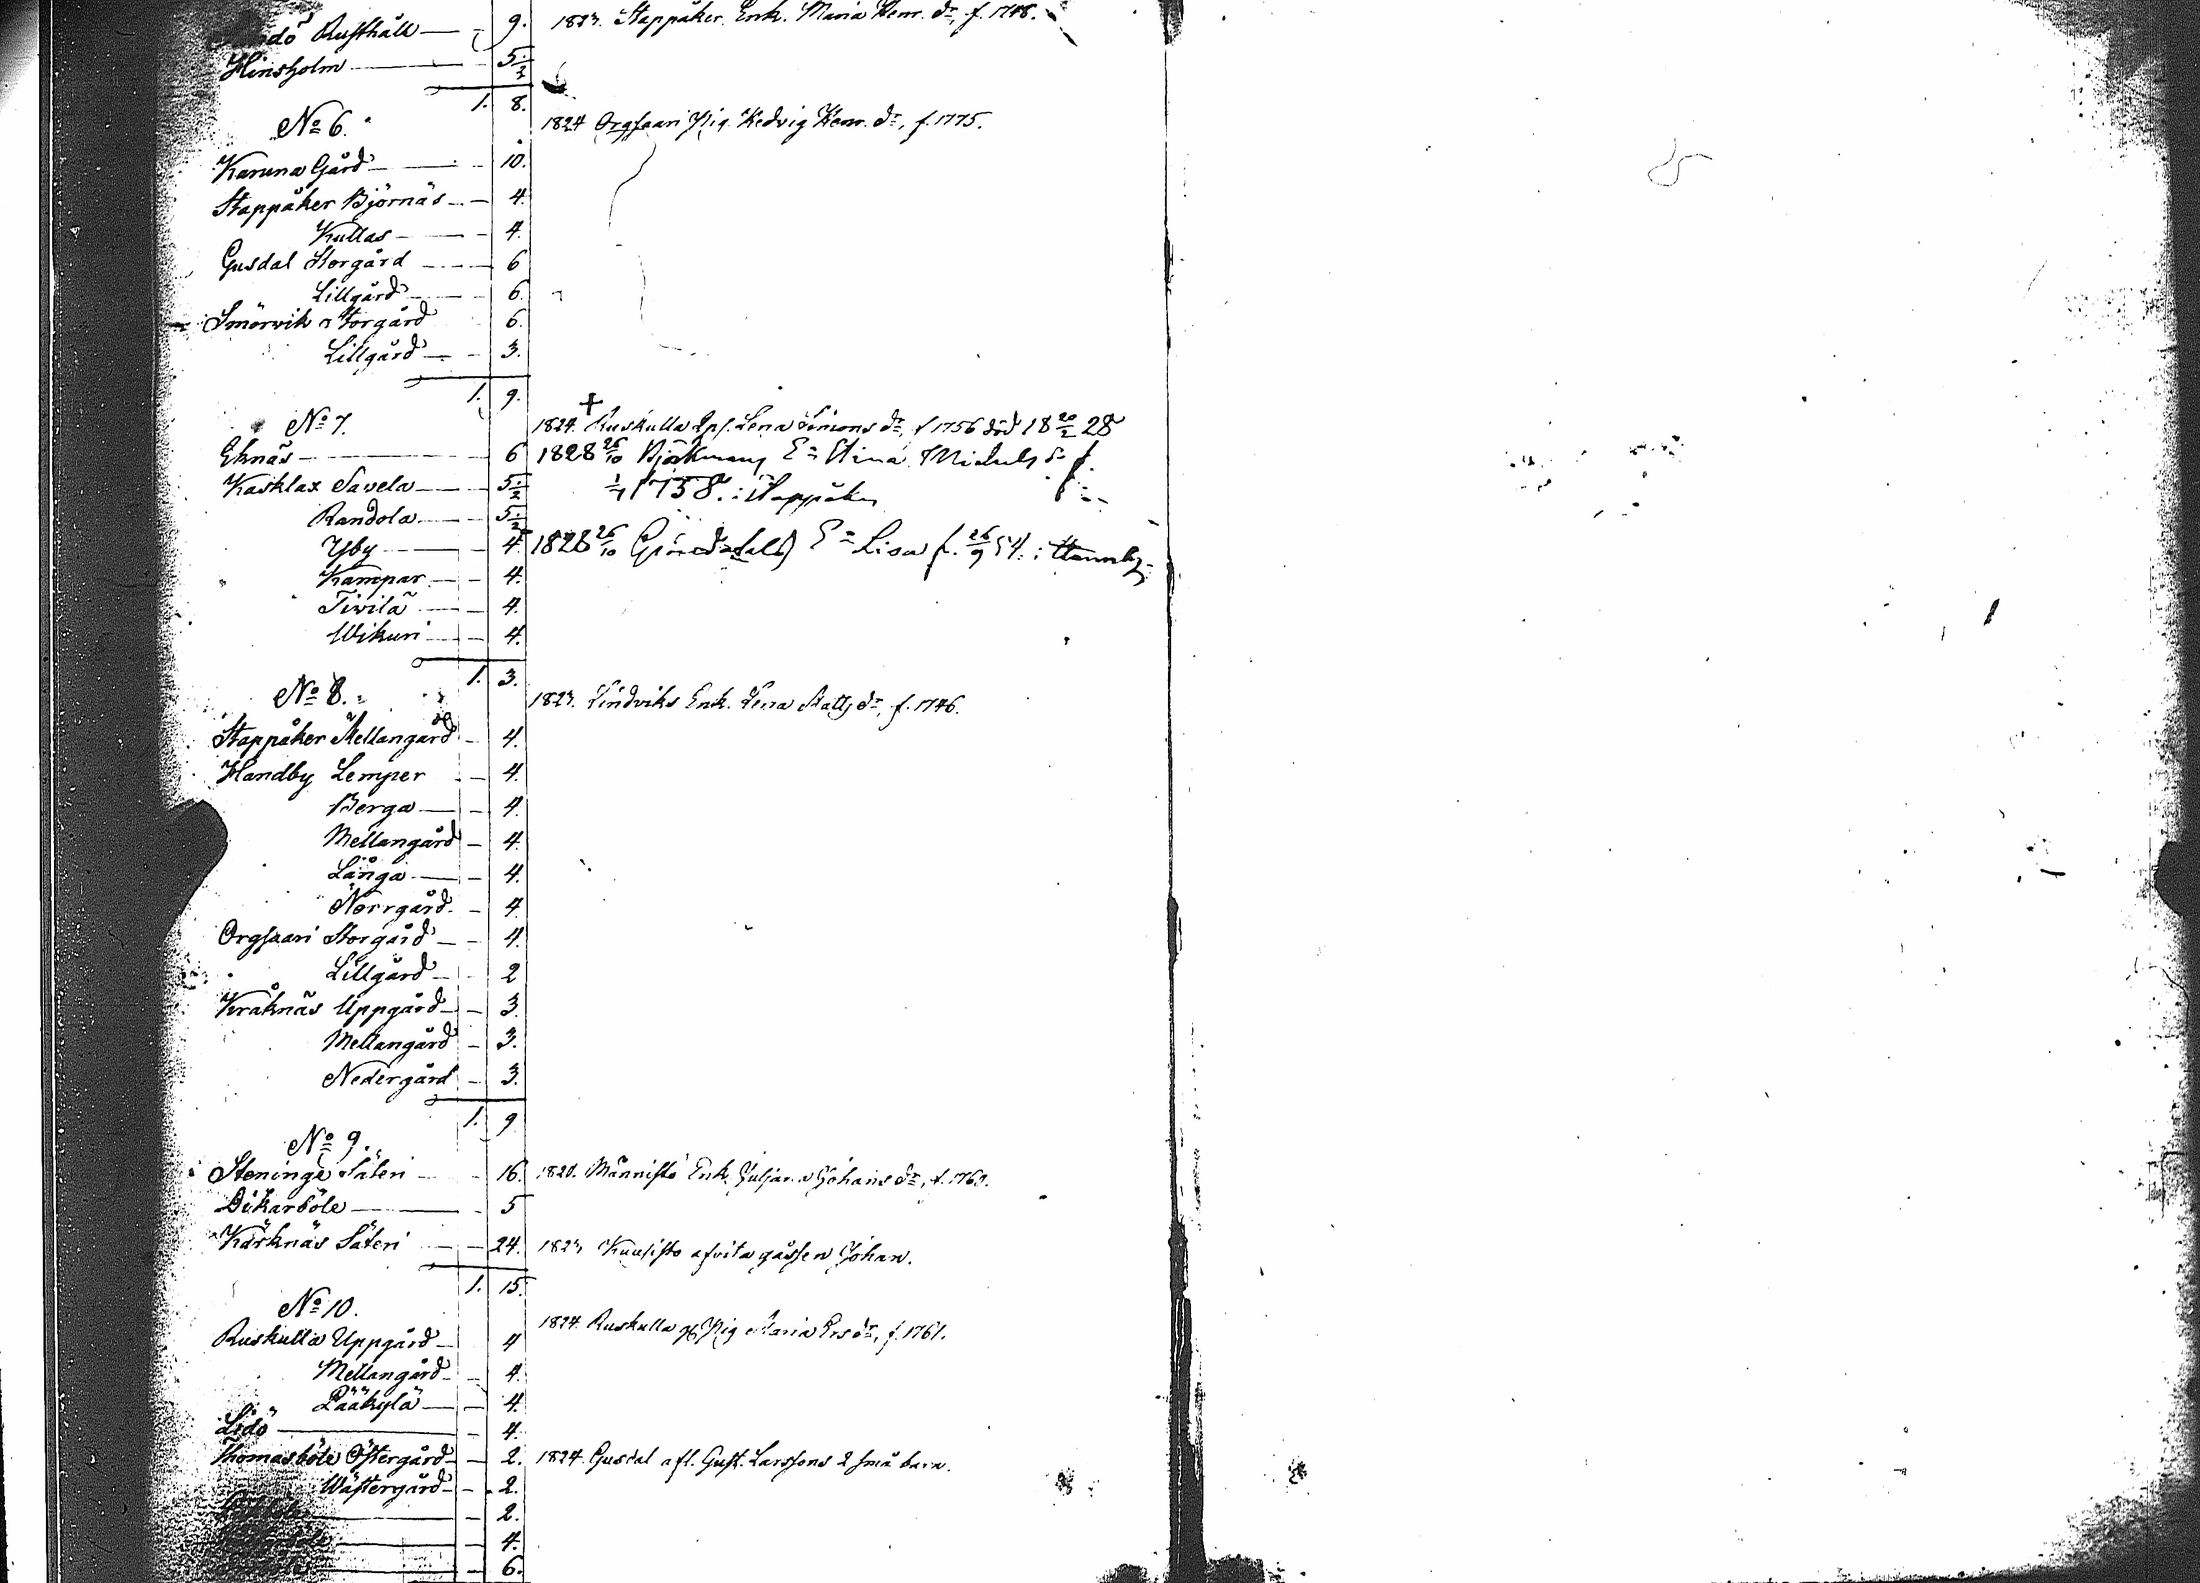 dö Rusthåll — 9. 1823. Stappåker Enk. Maria Henr. dr, f. 1748.
Hinsholm — 5 1/2
1. 8.
No 6. 1824 Orgsaari Pig. Hedvig Henr. dr, f. 1775.
Karuna Gård — 10.
Stappåker Björnäs — 4
Kullas — 4.
Gusdal Storgård — 6
Lillgård — 6.
Smörvik Storgård 6.
Lillgård — 3.
1. 9.
No 7. 1824. Ruskulla Lena Simons dr, f 1756 död 18 20/2 28
Eknäs — 6 1828 26/10 E= Stina Michels dr f.
Kasklax Savela — 5 1/2 1758. i Stappåker
Randola — 5 1/2
Yby — 4 1828 26/10 E= Lisa f. 26/9 54. i
Kampar — 4.
Tivilä — 4.
Wikuri — 4.
1. 3.
No 8. 1823. Sindviks Enk. Lena Matts dr, f. 1746.
Stappåker Mellangård — 4.
Handby Lemper — 4.
Berga — 4.
Mellangård — 4.
Långa — 4.
Norrgård — 4
Orgsaari Storgård — 4.
Lillgård — 2
Kråknäs Uppgård — 3.
Mellangård — 3.
Nedergård — 3.
1. 9
No 9.
Steninge Säteri — 16. 1820. Männistö Enk. Juliana Johans dr, f. 1763.
Dikarböle — 5
Kärknäs Säteri — 24. 1823 Kuusisto afvita gåssen Johan.
1. 15.
No 10. 1824. Ruskulla Pig Maria Ersdr, f. 1761.
Ruskulla Uppgård — 4
Mellangård — 4.
Pääkylä — 4.
Lidö — 4.
Thomasböle Östergård — 2. 1824. Gusdal afl. Gust. Larssons 2 små barn.
Wästergård — 2.
2.
4.
6.